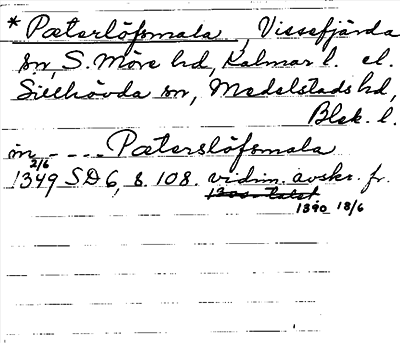 * Pæterlöfsmala, Vissefjärda
sn, S. Möre hd, Kalmar l. el.
Sillhövda sn, Medelstads hd,
Blek. l.
in - - - Pæterslöfsmala
2/6
1349 SD 6, s. 108. vidim. avskr. fr.
1390 18/6